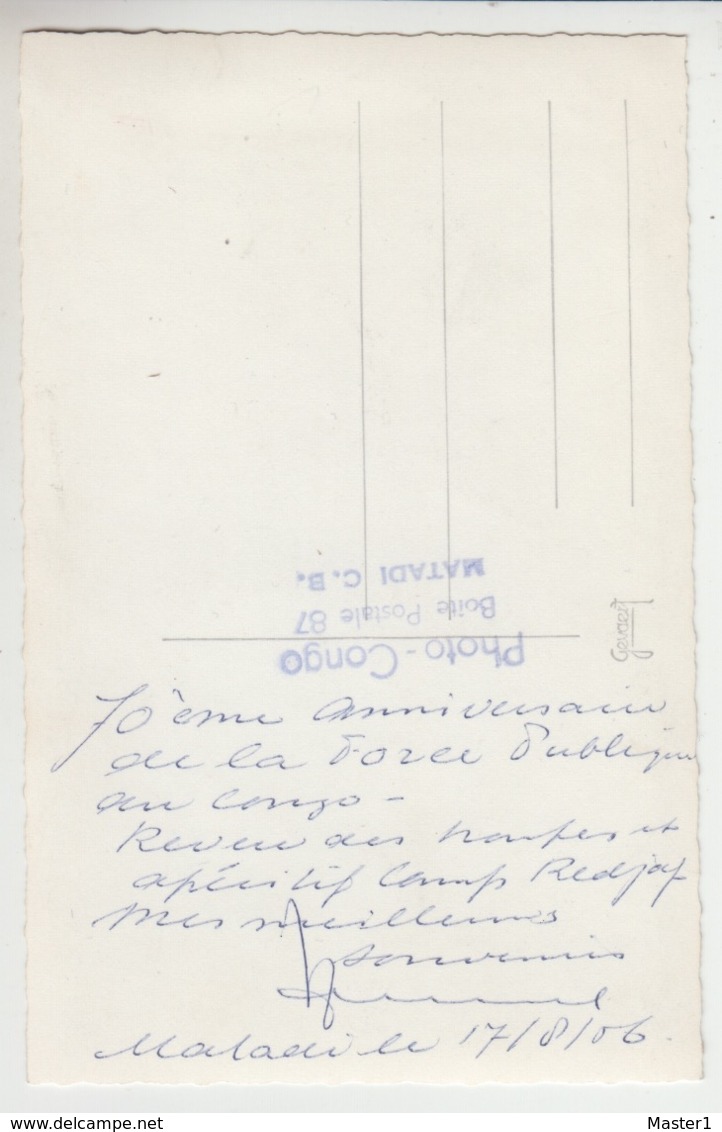 MATADI C.B.
Boite Postale 87
Photo-Congo
Gevaert
70ème anniversaire
de la Force Publique
au Congo -
Revue des troupes et
apéritif Camp Redjaf
Mes meilleurs
souvenirs
Matadi le 17/8/56
www.delcampe.net
Master1